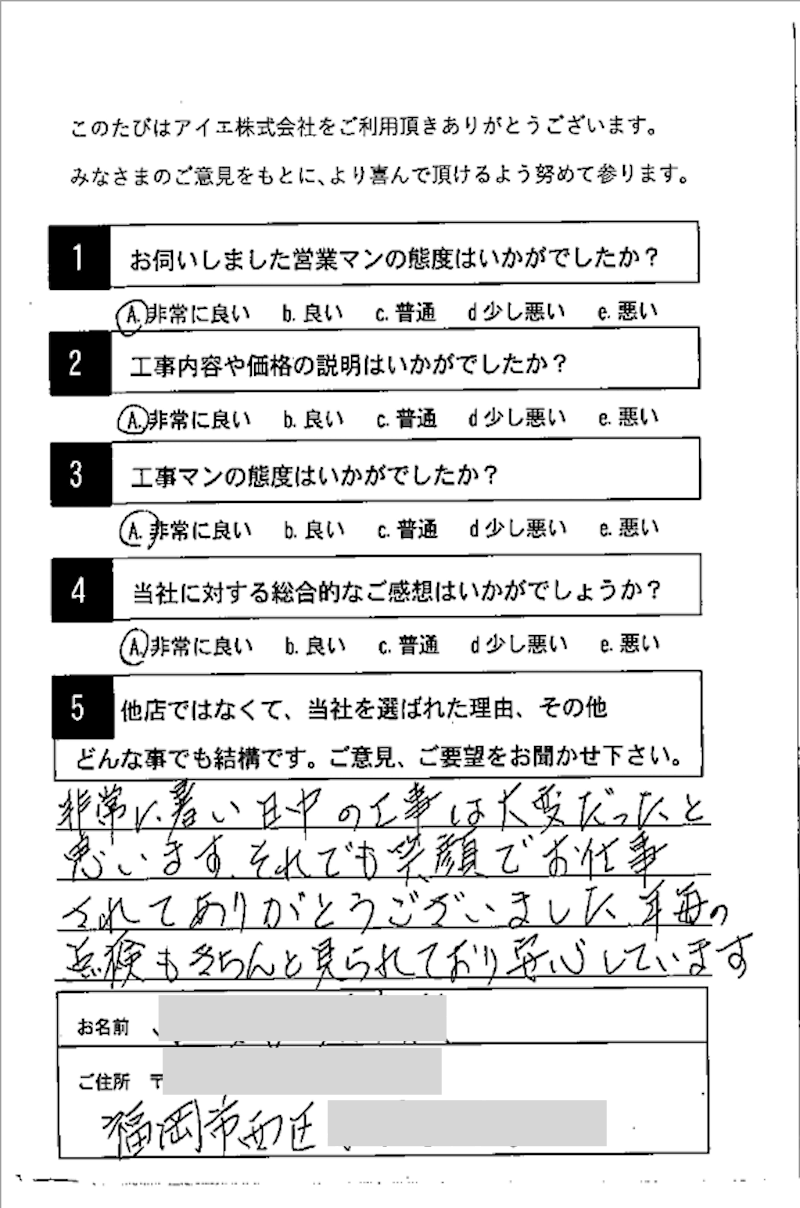 このたびはアイエ株式会社をご利用頂きありがとうございます。
みなさまのご意見をもとに、より喜んで頂けるよう努めて参ります。
1 お伺いしました営業マンの態度はいかがでしたか？
A.非常に良い b.良い c.普通 d少し悪い e.悪い
2 工事内容や価格の説明はいかがでしたか？
A.非常に良い b.良い c.普通 d少し悪い e.悪い
3 工事マンの態度はいかがでしたか？
A.非常に良い b.良い c.普通 d少し悪い e.悪い
4 当社に対する総合的なご感想はいかがでしょうか？
A.非常に良い b.良い c.普通 d少し悪い e.悪い
5 他店ではなくて、当社を選ばれた理由、その他
どんな事でも結構です。ご意見、ご要望をお聞かせ下さい。
非常に暑い日中の工事は大変だったと
思います。それでも笑顔でお仕事
されてありがとうございました。年毎の
点検もきちんと見られており安心しています
お名前
ご住所 〒
福岡市西区